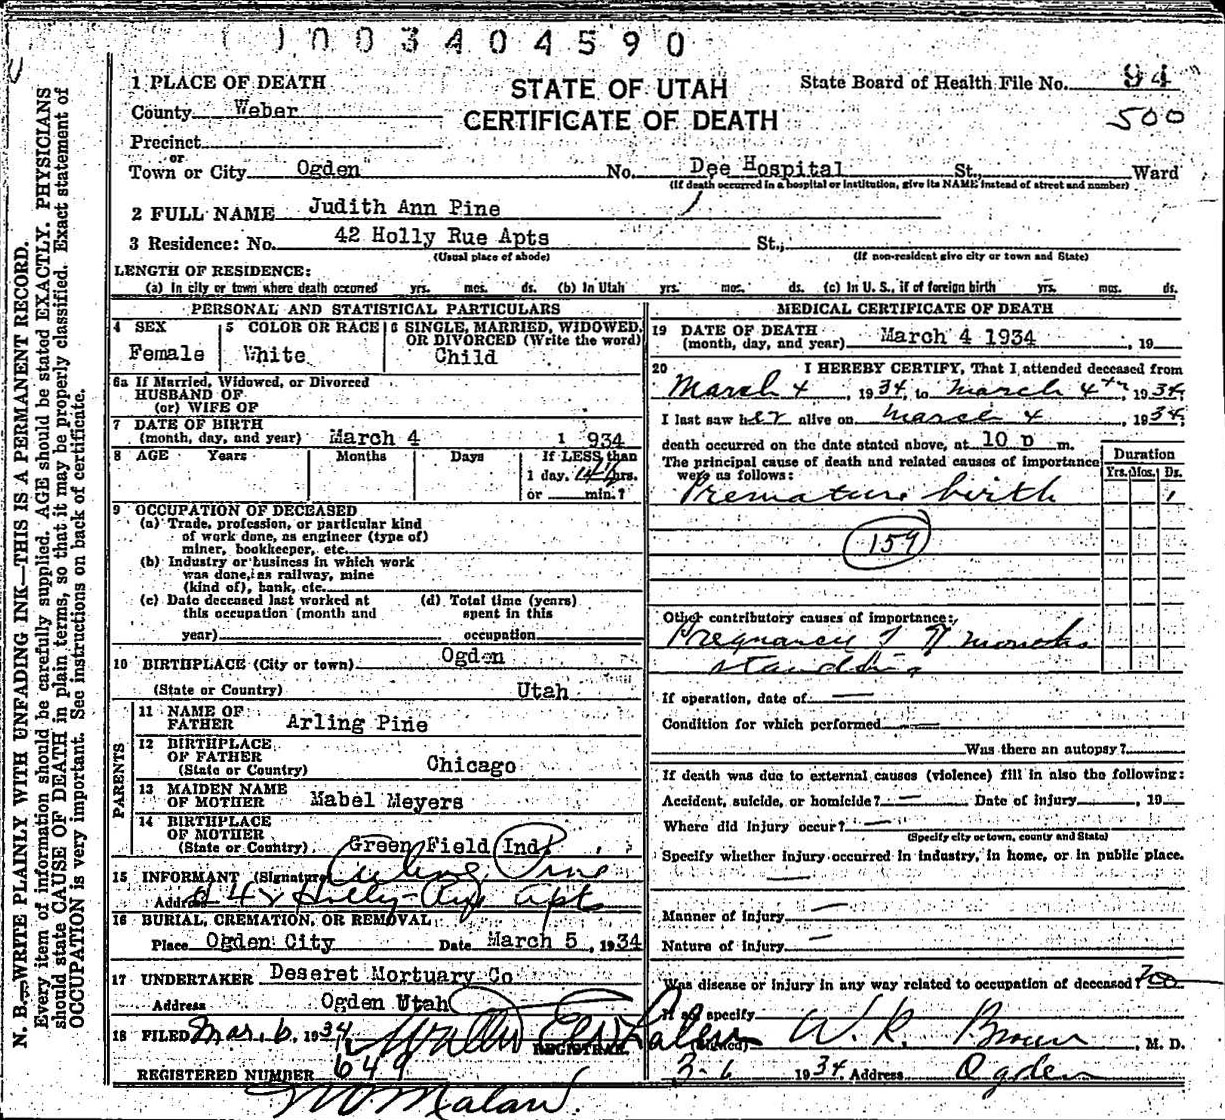 0 0 3 4 0 4 5 9 0
1 PLACE OF DEATH
County Weber
Precinct
or
Town or City Ogden
STATE OF UTAH
CERTIFICATE OF DEATH
State Board of Health File No. 94
500
No. Dee Hospital St., Ward
(If death occurred in a hospital or institution, give its NAME instead of street and number)
2 FULL NAME Judith Ann Pine
3 Residence: No. 42 Holly Rue Apts St.,
(Usual place of abode) (If non-resident give city or town and State)
LENGTH OF RESIDENCE:
(a) In city or town where death occurred yrs. mos. ds. (b) In Utah yrs. mos. ds. (c) In U. S., if of foreign birth yrs. mos. ds.
PERSONAL AND STATISTICAL PARTICULARS
4 SEX
Female
5 COLOR OR RACE
White
6 SINGLE, MARRIED, WIDOWED,
OR DIVORCED (Write the word)
Child
6a If Married, Widowed, or Divorced
HUSBAND OF
(or) WIFE OF
7 DATE OF BIRTH
(month, day, and year) March 4 1934
8 AGE Years Months Days If LESS than
1 day, hrs.
or min.?
9 OCCUPATION OF DECEASED
(a) Trade, profession, or particular kind
of work done, as engineer (type of)
miner, bookkeeper, etc.
(b) Industry or business in which work
was done, as railway, mine
(kind of), bank, etc.
(c) Date deceased last worked at
this occupation (month and
year)
(d) Total time (years)
spent in this
occupation
10 BIRTHPLACE (City or town) Ogden
(State or Country) Utah
PARENTS
11 NAME OF
FATHER Arling Pine
12 BIRTHPLACE
OF FATHER
(State or Country) Chicago
13 MAIDEN NAME
OF MOTHER Mabel Meyers
14 BIRTHPLACE
OF MOTHER
(State or Country) Green Field Ind.
15 INFORMANT (Signature) Arling Pine
Address # 42 Holly-Rue Apts
16 BURIAL, CREMATION, OR REMOVAL:
Place Ogden City Date March 5, 1934
17 UNDERTAKER Deseret Mortuary Co
Address Ogden Utah
18 FILED Mar. 6, 1934
REGISTRAR.
REGISTERED NUMBER 649
MEDICAL CERTIFICATE OF DEATH
19 DATE OF DEATH
(month, day, and year) March 4 1934, 19
20 I HEREBY CERTIFY, That I attended deceased from
March 4, 1934, to March 4th, 1934,
I last saw her alive on March 4, 1934,
death occurred on the date stated above, at 10 p m.
The principal cause of death and related causes of importance
were as follows:
Duration
Yrs. Mos. Ds.
Premature birth 1
159
Other contributory causes of importance:
Pregnancy of 7 months
standing
If operation, date of —
Condition for which performed —
Was there an autopsy?
If death was due to external causes (violence) fill in also the following:
Accident, suicide, or homicide? — Date of injury , 19
Where did injury occur? —
(Specify city or town, county and State)
Specify whether injury occurred in industry, in home, or in public place.
—
Manner of Injury —
Nature of Injury —
Was disease or injury in any way related to occupation of deceased? no
If so specify
(Signed) W. R. Brown, M. D.
3-6 1934 Address Ogden
N. B.—WRITE PLAINLY WITH UNFADING INK—THIS IS A PERMANENT RECORD.
Every item of information should be carefully supplied. AGE should be stated EXACTLY. PHYSICIANS
should state CAUSE OF DEATH in plain terms, so that it may be properly classified. Exact statement of
OCCUPATION is very important. See instructions on back of certificate.